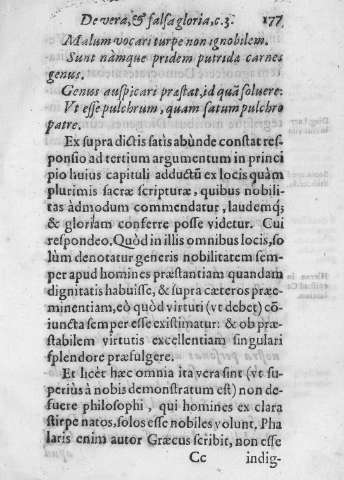 De vera, & falsa gloria, c.3. 177
Malum vocari turpe non ignobilem.
Sunt námque pridem putrida carnes
genus.
Genus auspicari præstat, id quã soluere:
Vt esse pulchrum, quam satum pulchro
patre.
Ex supra dictis satis abùnde constat res
ponsio ad tertium argumentum in princi
pio huius capituli adductũ ex locis quàm
plurimis sacræ scripturæ, quibus nobili-
tas àdmodum commendatur, laudemq;
& gloriam conferre posse videtur. Cui
respondeo. Quòd in illis omnibus locis, so
lùm denotatur generis nobilitatem sem-
per apud homines præstantiam quandam
dignitatis habuisse, & supra cæteros præe-
minentiam, eò quòd virtuti (vt debet) cõ-
iuncta semper esse existimatur: & ob præ-
stabilem virtutis excellentiam singulari
splendore præfulgere.
Et licèt hæc omnia ita vera sint (vt su-
periùs à nobis demonstratum est) non de-
fuere philosophi, qui homines ex clara
stirpe natos, solos esse nobiles volunt. Pha
laris enim autor Græcus scribit, non esse
Cc indig-